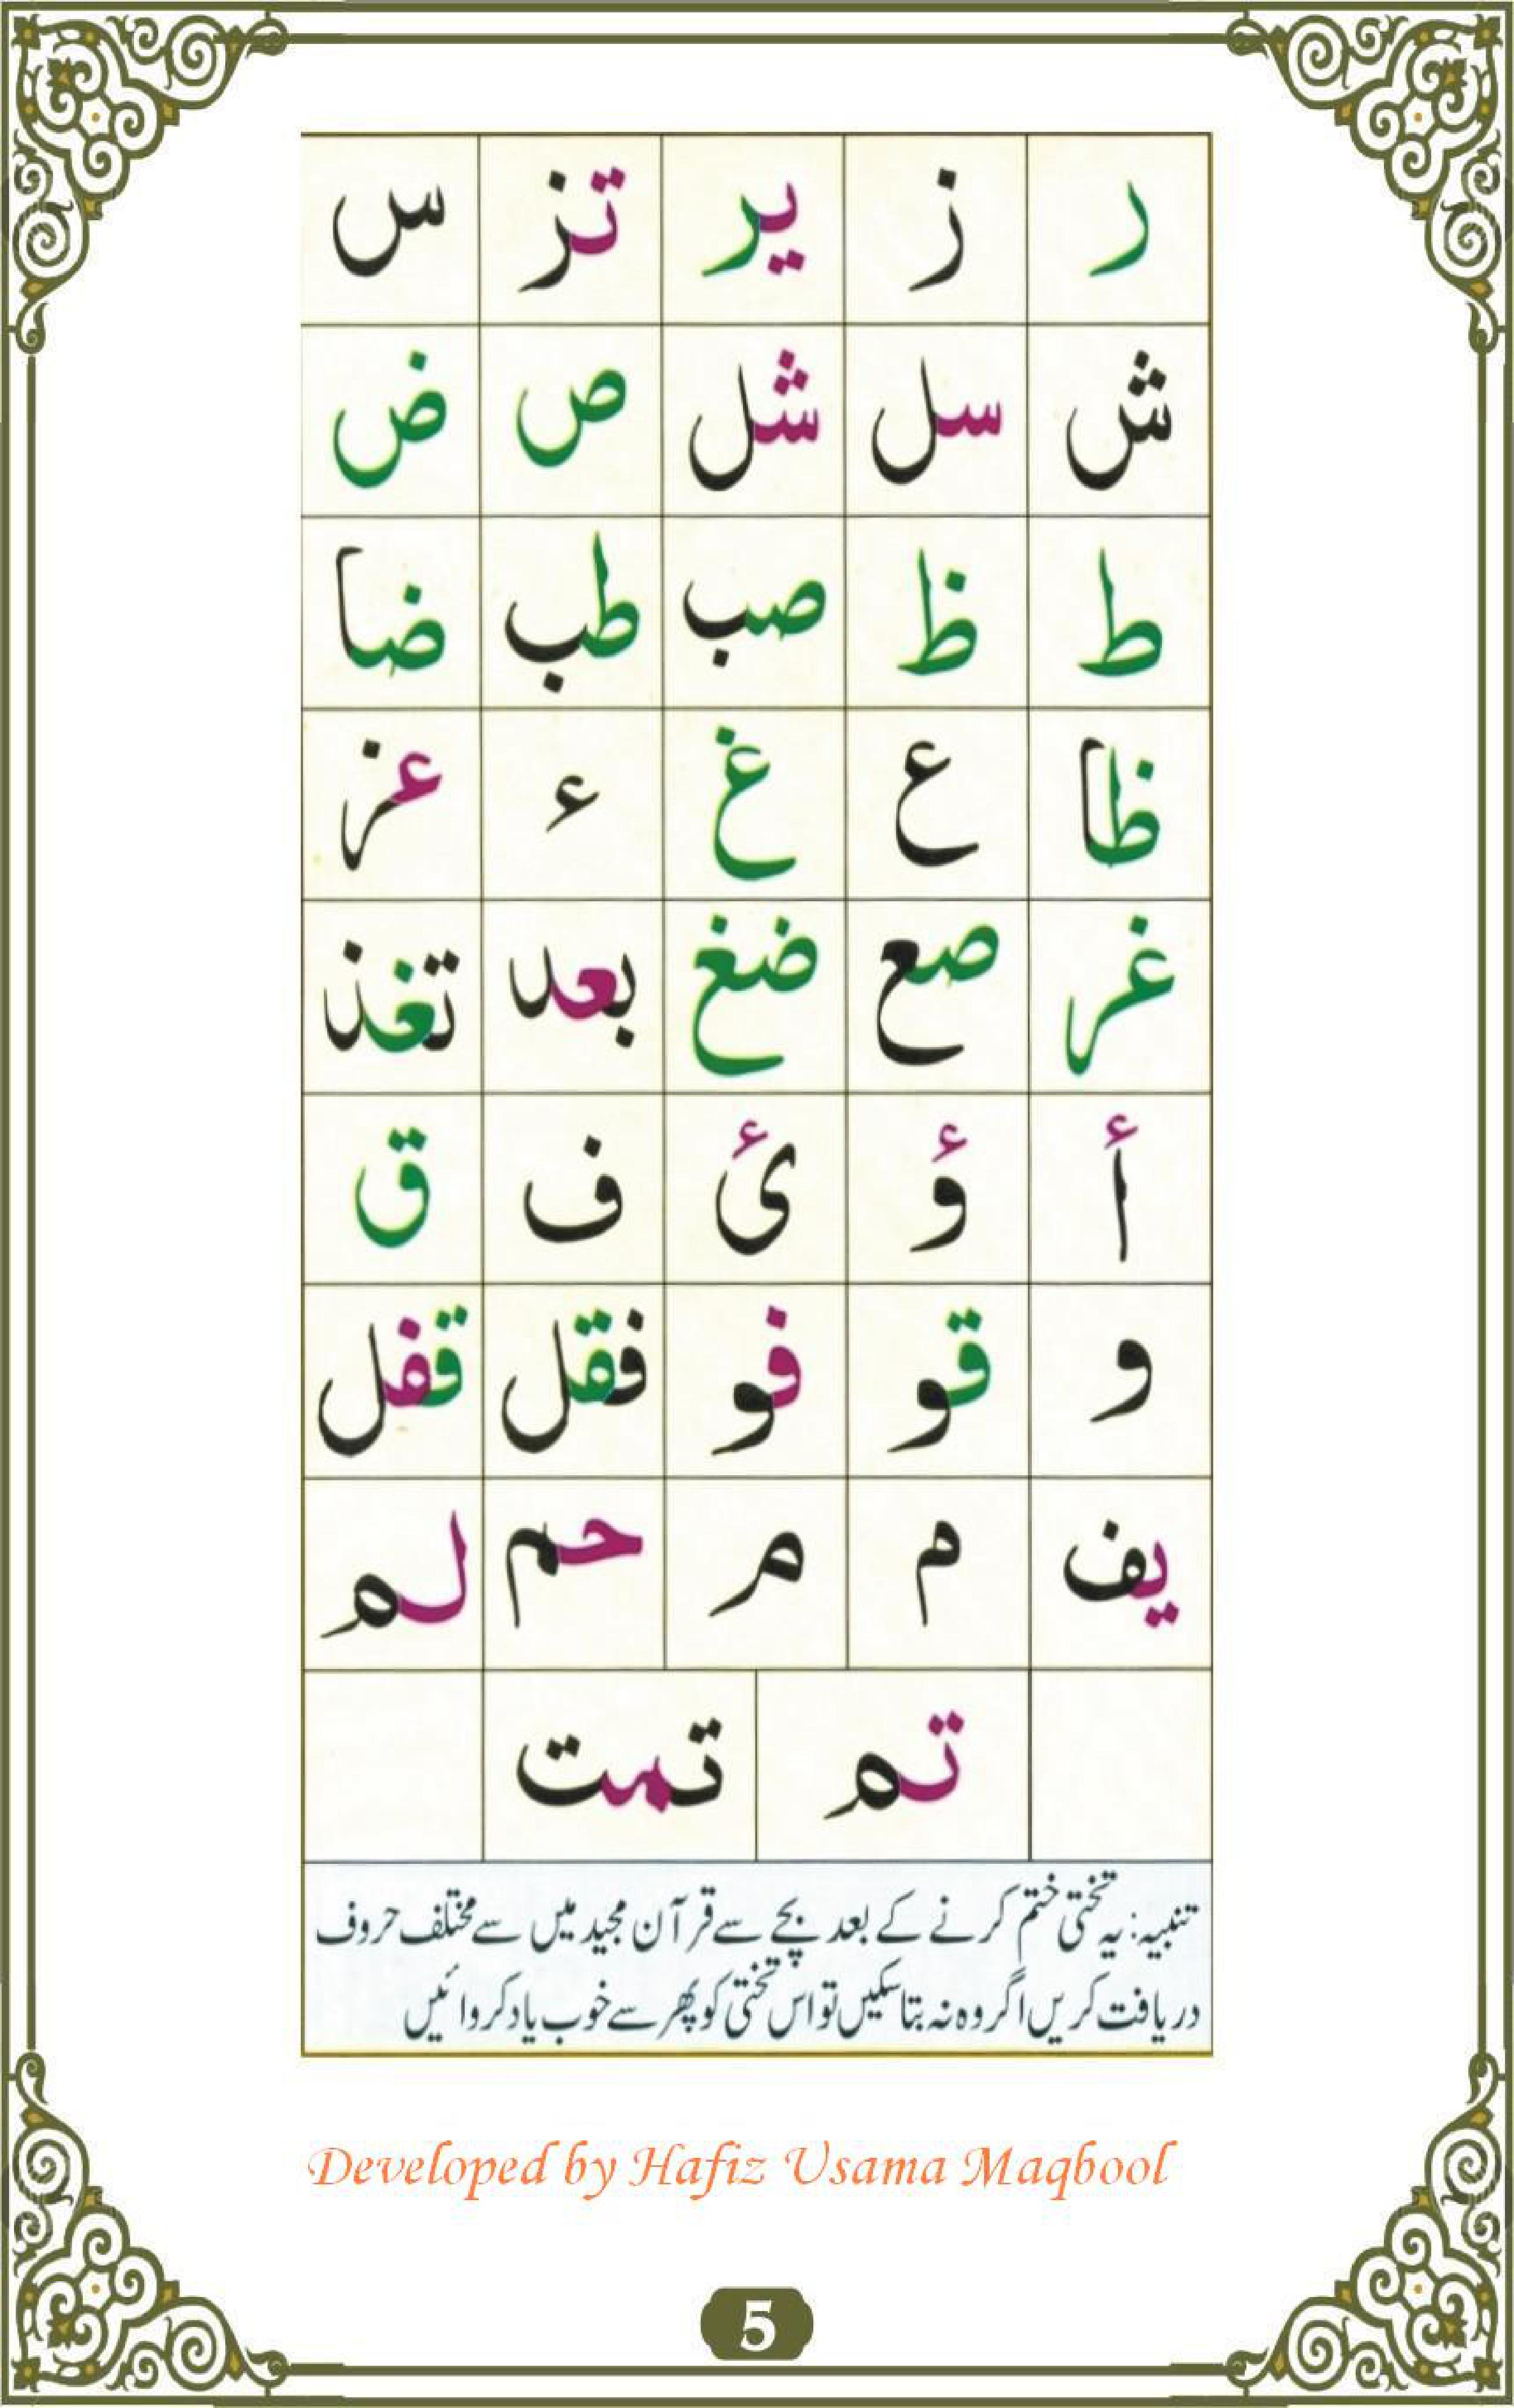 ر ز یر تز س
ش سل شل ص ض
ط ظ صب طب ضا
ظا ع غ ء عز
غر صع ضغ بعد تغذ
أ ؤ ئ ف ق
و قو فو فقل قفل
یف م م حم لم
تم تمت
تنبیہ: یہ تختی ختم کرنے کے بعد بچے سے قرآن مجید میں سے مختلف حروف
دریافت کریں اگر وہ نہ بتا سکیں تو اس تختی کو پھر سے خوب یاد کروائیں
Developed by Hafiz Usama Maqbool
5